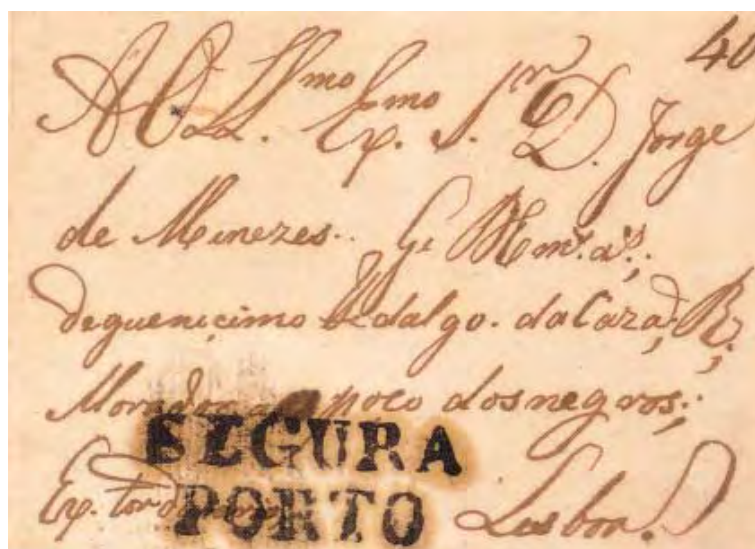 40
Ill.mo Ex.mo S.r D. Jorge
de Menezes..
deguenicimo Fidalgo. da Caza, R.;
Morador poco dos negros;
SEGURA
PORTO
Lisboa.